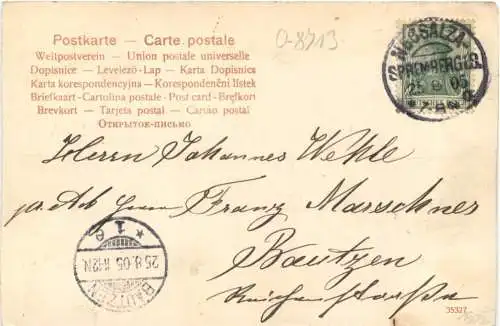 Postkarte — Carte postale
O-8713
Weltpostverein — Union postale universelle
Dopisnice — Levelező-Lap — Karta Dopisnica
Karta korespondencyjna — Korespondenční lístek
Briefkaart - Cartolina postale - Post card - Brefkort
Brevkort — Tarjeta postal — Cartao postal
Открытое-письмо
NEUSALZA-
SPREMBERG
25 8 05
Herrn Johannes Wehle
Herrn Franz Marschner
Bautzen
35327
* 1 e
25.8.05.
BAUTZEN